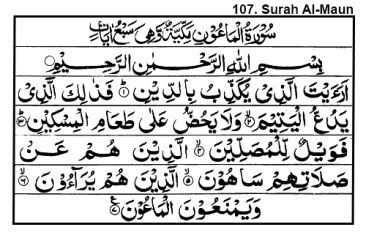 107. Surah Al-Maun
سُوْرَةُ الْمَاعُوْنِ مَكِّيَّةٌ وَّهِيَ سَبْعُ اٰيَاتٍ
بِسْمِ اللّٰهِ الرَّحْمٰنِ الرَّحِيْمِ
اَرَءَيْتَ الَّذِيْ يُكَذِّبُ بِالدِّيْنِ ۝١ فَذٰلِكَ الَّذِيْ
يَدُعُّ الْيَتِيْمَ ۝٢ وَلَا يَحُضُّ عَلٰى طَعَامِ الْمِسْكِيْنِ ۝٣
فَوَيْلٌ لِّلْمُصَلِّيْنَ ۝٤ الَّذِيْنَ هُمْ عَنْ
صَلَاتِهِمْ سَاهُوْنَ ۝٥ الَّذِيْنَ هُمْ يُرَآءُوْنَ ۝٦
وَيَمْنَعُوْنَ الْمَاعُوْنَ ۝٧